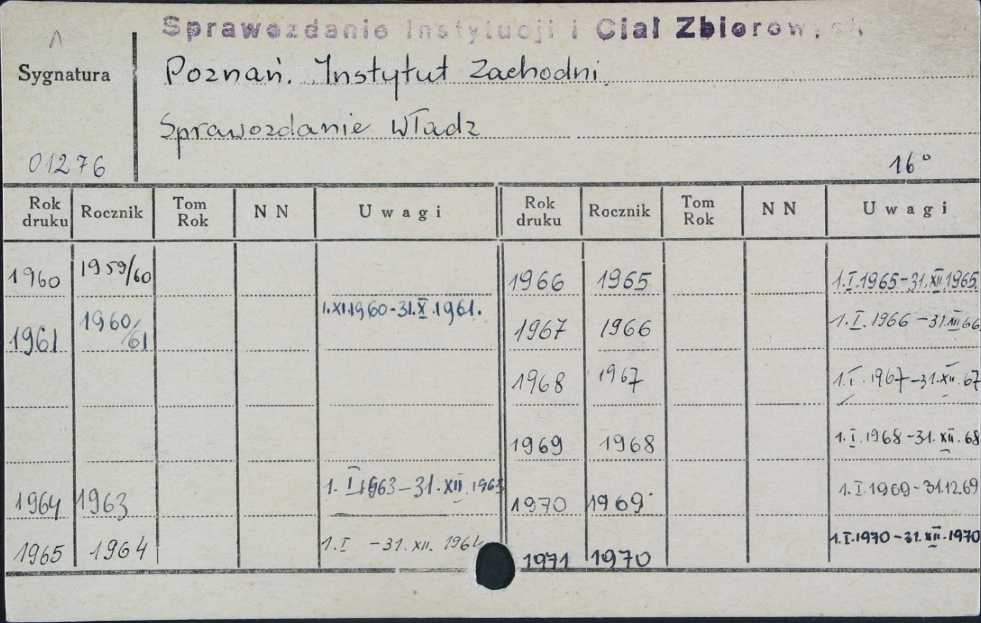 Sprawozdanie Instytucji i Ciał Zbiorowych
Sygnatura
Poznań. Instytut Zachodni
Sprawozdanie Władz
01276
16°
Rok druku Rocznik Tom Rok N N Uwagi Rok druku Rocznik Tom Rok N N Uwagi
1960 1959/60 1966 1965 1.I.1965-31.XII.1965
1961 1960/61 1.XI.1960-31.X.1961. 1967 1966 1.I.1966-31.XII.66
1968 1967 1.I.1967-31.XII.67
1969 1968 1.I.1968-31.XII.68
1964 1963 1.I.1963-31.XII.1963 1970 1969 1.I.1969-31.12.69
1965 1964 1.I -31.XII. 1964 1971 1970 1.I.1970-31.XII.1970